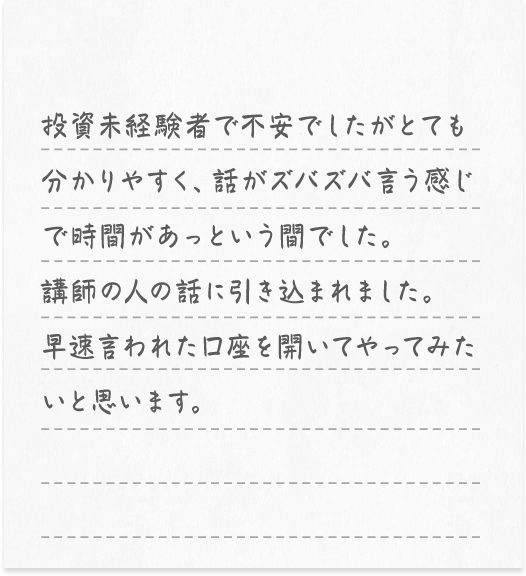 投資未経験者で不安でしたがとても
分かりやすく、話がズバズバ言う感じ
で時間があっという間でした。
講師の人の話に引き込まれました。
早速言われた口座を開いてやってみた
いと思います。